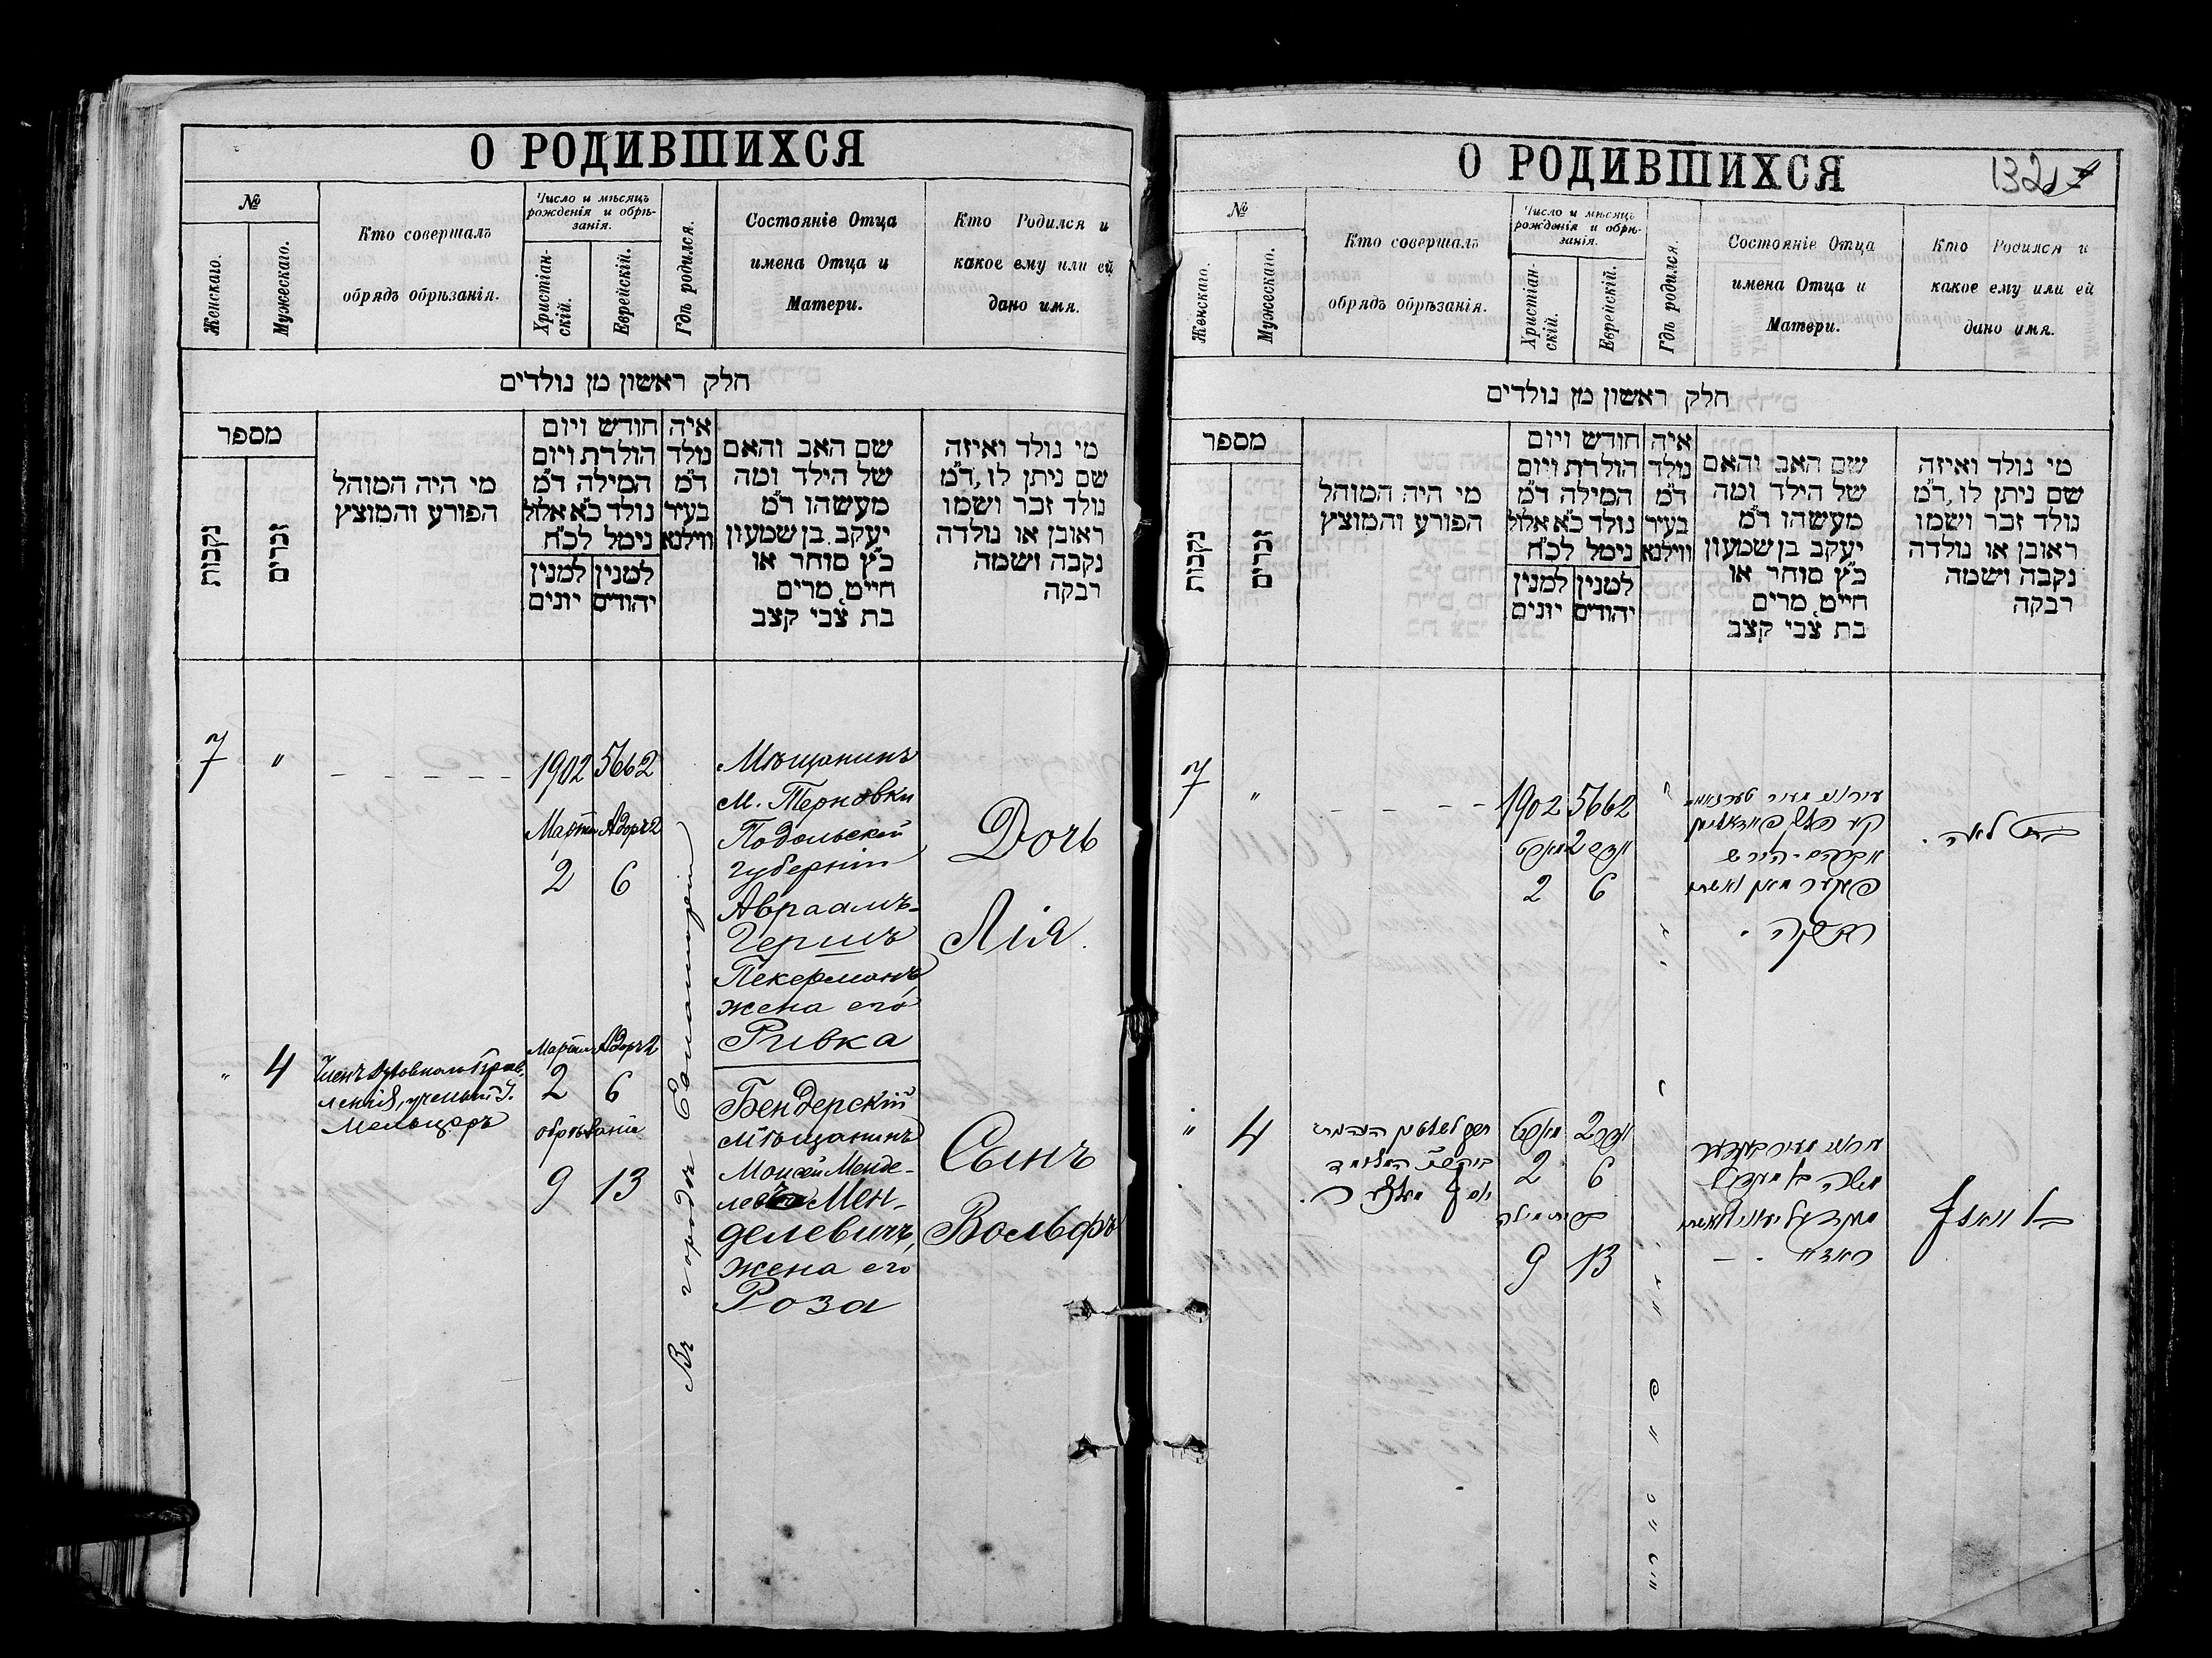 О РОДИВШИХСЯ
№
Женскаго.
Мужескаго.
Кто совершалъ
обрядъ обрѣзанія.
Число и мѣсяцъ
рожденія и обрѣ-
занія.
Христіан-
скій.
Еврейскій.
Гдѣ родился.
Состояніе Отца
имена Отца и
Матери.
Кто Родился и
какое ему или ей
дано имя.
חלק ראשון מן נולדים
מספר
נקבות
זכרים
מי היה המוהל
הפורע והמוצץ
חודש ויום
הולדת ויום
המילה ד״מ
נולד כ״א אלול
נימל לכ״ח
למנין
יונים
למנין
יהודים
איה
נולד
ד״מ
בעיר
ווילנא
שם האב והאם
של הילד ומה
מעשהו ד״מ
יעקב בן שמעון
כ״ץ סוחר או
חייט, מרים
בת צבי קצב
מי נולד ואיזה
שם ניתן לו, ד״מ
נולד זכר ושמו
ראובן או נולדה
נקבה ושמה
רבקה
7 " - - - - -
1902 5662
Марта Адоръ 2
2 6
Въ городѣ
Мѣщанинъ
м. Терновки
Подольской
губерніи
Авраамъ-
Гершъ
Пекерманъ,
жена его
Ривка
Дочь
Лія.
" 4
Членъ Духовнаго Прав-
ленія, ученый
Мельцеръ
Марта Адоръ 2
2 6
обрѣзаніе
9 13
Бендерскій
мѣщанинъ
Моисей Менде-
Мен-
делевичъ,
жена его
Роза
Сынъ
Вольфъ
О РОДИВШИХСЯ
132
№
Женскаго.
Мужескаго.
Кто совершалъ
обрядъ обрѣзанія.
Число и мѣсяцъ
рожденія и обрѣ-
занія.
Христіан-
скій.
Еврейскій.
Гдѣ родился.
Состояніе Отца
имена Отца и
Матери.
Кто Родился и
какое ему или ей
дано имя.
חלק ראשון מן נולדים
מספר
נקבות
זכרים
מי היה המוהל
הפורע והמוצץ
חודש ויום
הולדת ויום
המילה ד״מ
נולד כ״א אלול
נימל לכ״ח
למנין
יונים
למנין
יהודים
איה
נולד
ד״מ
בעיר
ווילנא
שם האב והאם
של הילד ומה
מעשהו ד״מ
יעקב בן שמעון
כ״ץ סוחר או
חייט, מרים
בת צבי קצב
מי נולד ואיזה
שם ניתן לו, ד״מ
נולד זכר ושמו
ראובן או נולדה
נקבה ושמה
רבקה
7 " - - - - -
1902 5662
מארט אדר 2
2 6
אברהם - הירש
פעקערמאן ואשתו
רבקה .
בת לאה .
" 4
מארט אדר 2
2 6
ברית מילה
9 13
משה בן מענדל
מענדעלעוויץ ואשתו
ראזא . -
בן וואלף